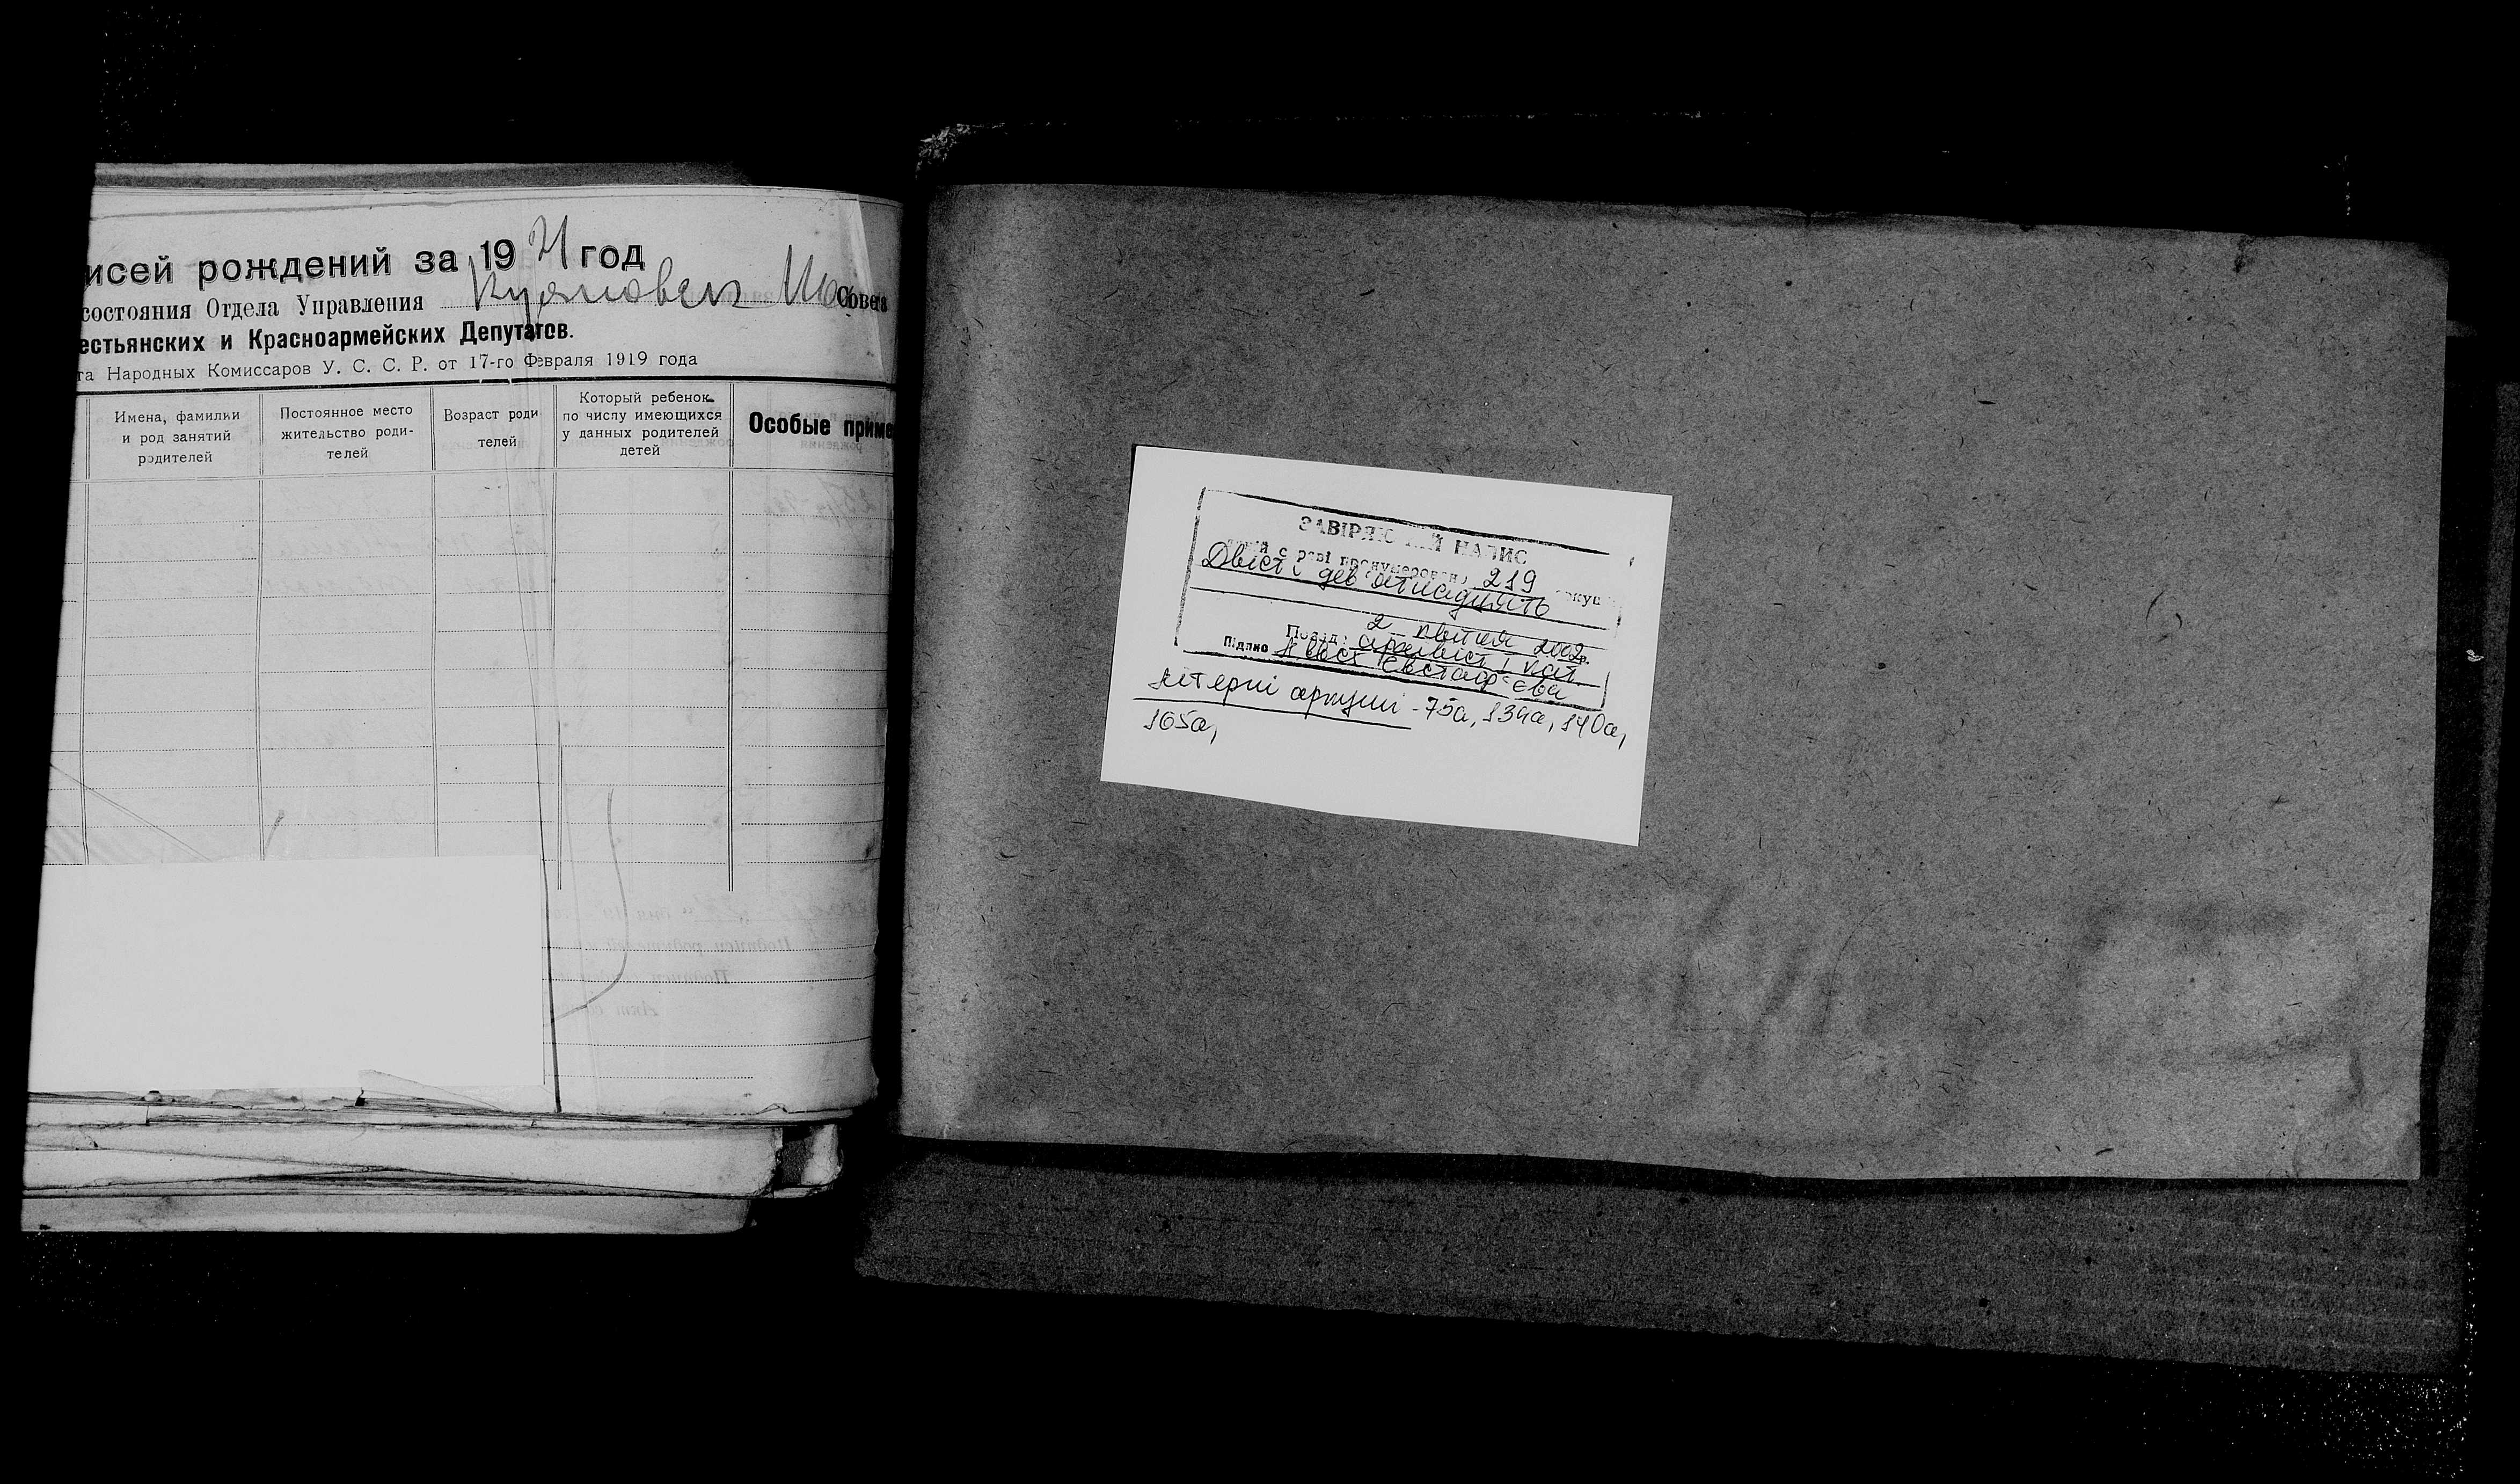 исей рождений за 1921 год
состояния Отдела Управления Совета
естьянских и Красноармейских Депутатов.
та Народных Комиссаров У. С. С. Р. от 17-го Февраля 1919 года
Имена, фамилии
и род занятий
родителей
Постоянное место
жительство роди-
телей
Возраст роди
телей
Который ребенок
по числу имеющихся
у данных родителей
детей
Особые приме
ЗАВІРЯЮЧИЙ НАПИС
справі пронумеровано 219
Двісті дев'ятнадцять
2 квітня 2002р.
Посада: архівіст І кат.
Підпис Євстаф'єва
літерні аркуші - 75а, 139а, 140а,
165а,